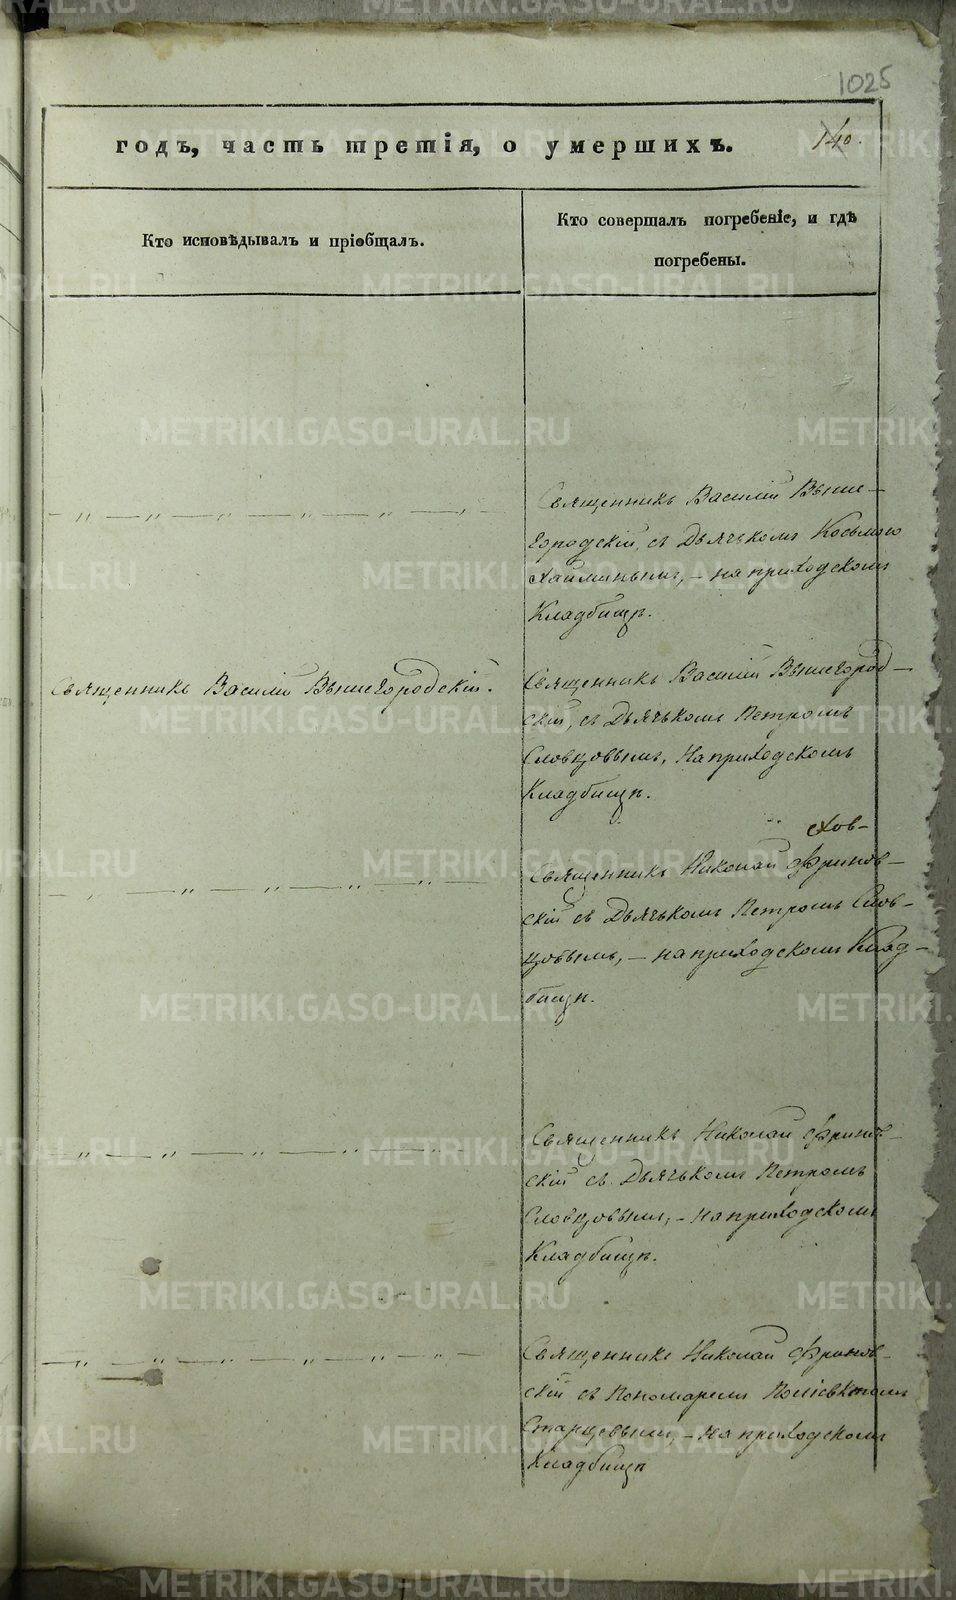 1025
годъ, часть третія, о умершихъ.
140.
Кто исповѣдывалъ и пріобщалъ.
Кто совершалъ погребеніе, и гдѣ
погребены.
Священникъ Василій Выше-
городскій, съ Дьячькомъ Косьмою
на приходскомъ
Кладбищѣ.
Священникъ Василій Вышегородскій.
Священникъ Василій Вышегород-
скій, съ Дьячькомъ Петромъ
Словцовымъ, на приходскомъ
Кладбищѣ.
Священникъ Николай Фринов-
скій съ Дьячькомъ Петромъ Слов-
цовымъ, - на приходскомъ Клад-
бищѣ.
Священникъ Николай Фринов-
скій съ Дьячькомъ Петромъ
Словцовымъ, - на приходскомъ
Кладбищѣ.
Священникъ Николай Фринов-
скій съ Пономаремъ Поліевктомъ
Старцевымъ, - на приходскомъ
Кладбищѣ
METRIKI.GASO-URAL.RU